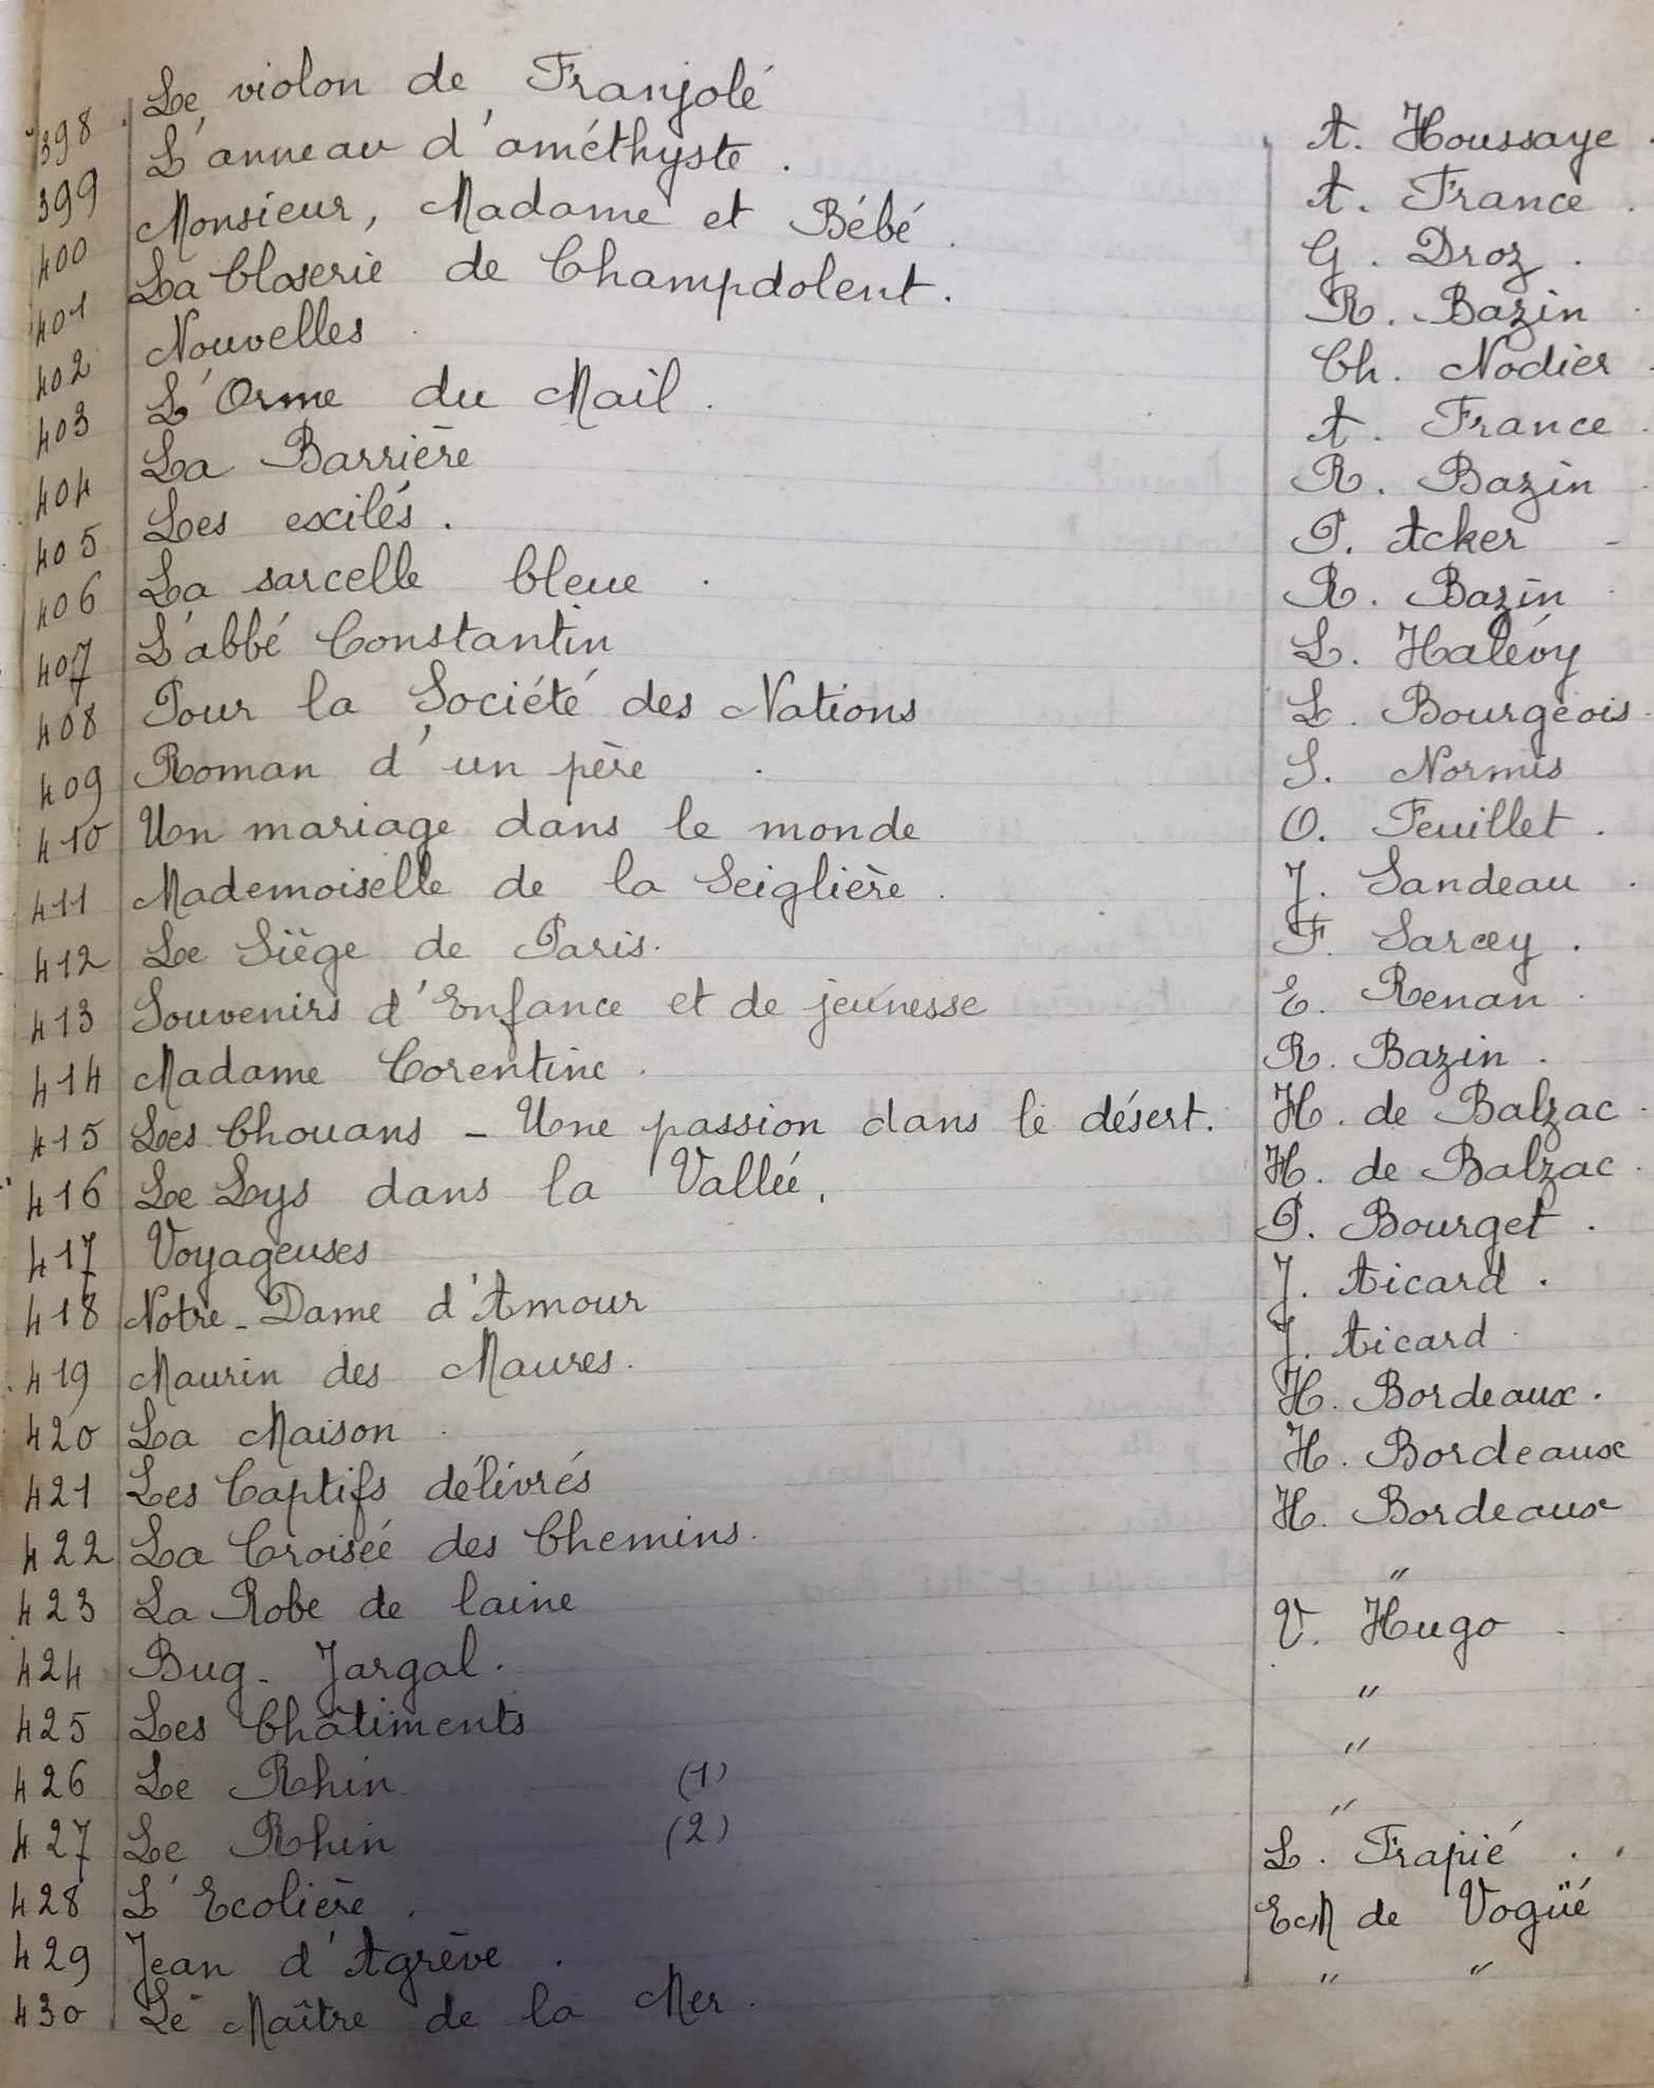 398 Le violon de Franjolé A. Houssaye.
399 L'anneau d'améthyste. A. France.
400 Monsieur, Madame et Bébé. G. Droz.
401 La Closerie de Champdolent. R. Bazin
402 Nouvelles. Ch. Nodier.
403 L'Orme du Mail. A. France.
404 La Barrière R. Bazin
405 Les exilés. P. Acker -
406 La sarcelle bleue. R. Bazin
407 L'abbé Constantin L. Halévy
408 Pour la Société des Nations L. Bourgeois.
409 Roman d'un père. S. Normis
410 Un mariage dans le monde O. Feuillet.
411 Mademoiselle de la Seiglière. J. Sandeau.
412 Le Siège de Paris. F. Sarcey.
413 Souvenirs d'Enfance et de jeunesse E. Renan.
414 Madame Corentine. R. Bazin.
415 Les Chouans - Une passion dans le désert. H. de Balzac.
416 Le Lys dans la Vallée. H. de Balzac.
417 Voyageuses P. Bourget.
418 Notre-Dame d'Amour J. Aicard.
419 Maurin des Maures. J. Aicard.
420 La Maison. H. Bordeaux.
421 Les Captifs délivrés H. Bordeaux
422 La Croisée des Chemins. H. Bordeaux
423 La Robe de laine "
424 Bug-Jargal. V. Hugo.
425 Les Châtiments "
426 Le Rhin (1) "
427 Le Rhin (2) "
428 L'Ecolière. L. Frapié.
429 Jean d'Agrève. E.M de Vogüé
430 Le Maître de la Mer. " "